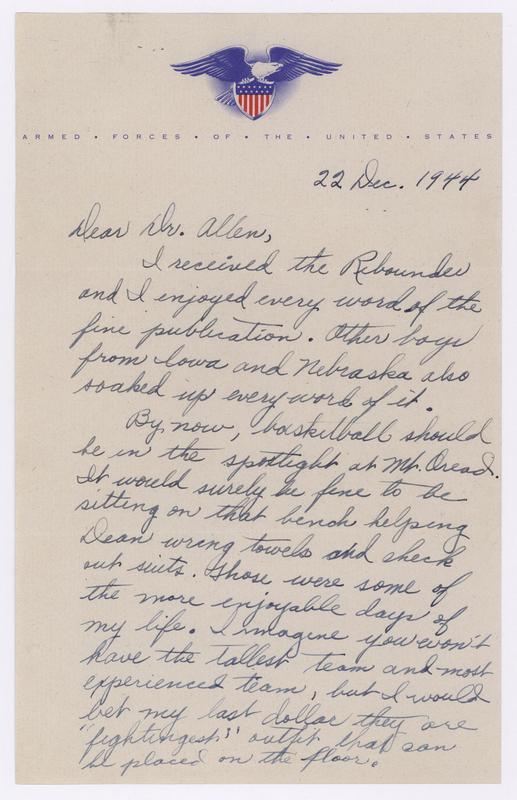 ARMED • FORCES • OF • THE • UNITED • STATES
22 Dec. 1944
Dear Dr. Allen,
I received the Rebounder
and I enjoyed every word of the
fine publication. Other boys
from Iowa and Nebraska also
soaked up every word of it.
By now, basketball should
be in the spotlight at Mt. Oread.
It would surely be fine to be
sitting on that bench helping
Dean wring towels and check
out suits. Those were some of
the more enjoyable days of
my life. I imagine you won't
have the tallest team and most
experienced team, but I would
bet my last dollar they are
"fightingest" outfit that can
be placed on the floor.